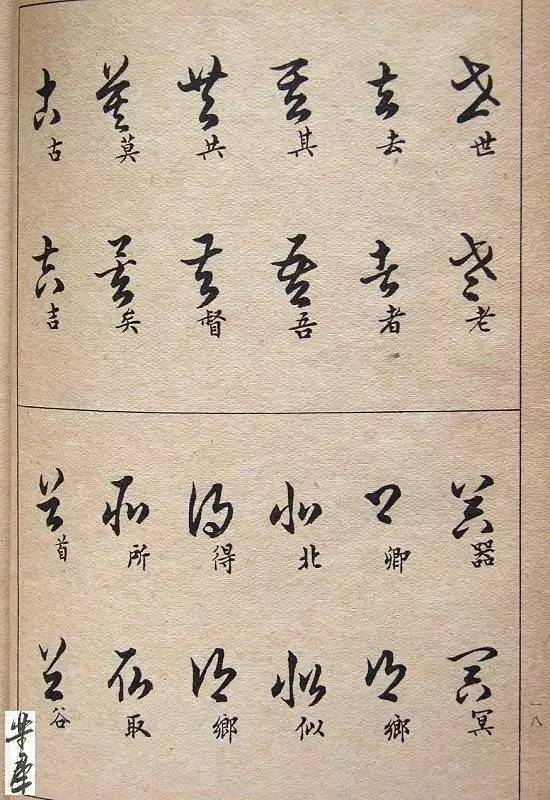 世
老
去
者
其
吾
共
督
莫
矣
古
吉
器
冥
卿
鄉
北
似
得
鄉
所
取
首
谷
一八